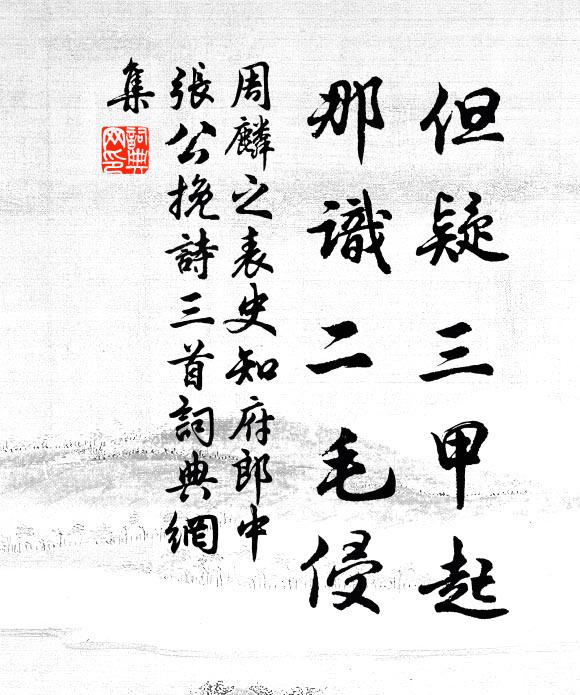 但疑三甲起
那識二毛侵
周麟之表史知府郎中
張公挽詩三首詞典網
集
詞典
网印